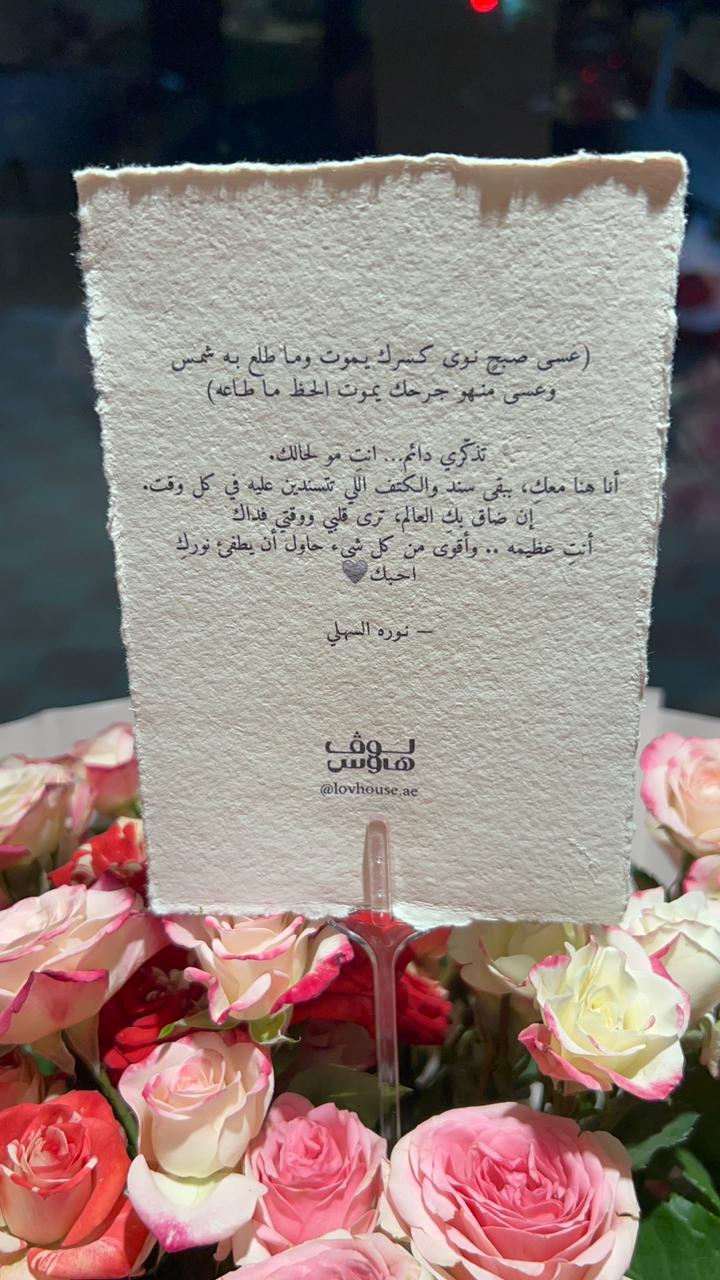 (عسى صبحٍ نوى كسرك يموت وما طلع به شمس
وعسى منهو جرحك يموت الحظ ما طاعه)
تذكّري دائم... انتِ مو لحالك.
أنا هنا معك، ببقى سند والكتف اللي تتسندين عليه في كل وقت.
إن ضاق بك العالم، ترى قلبي ووقتي فداك
أنتِ عظيمه .. وأقوى من كل شيء حاول أن يطفئ نوركِ
احبك🖤
— نوره السهلي
لوڤ
هاوس
@lovhouse.ae